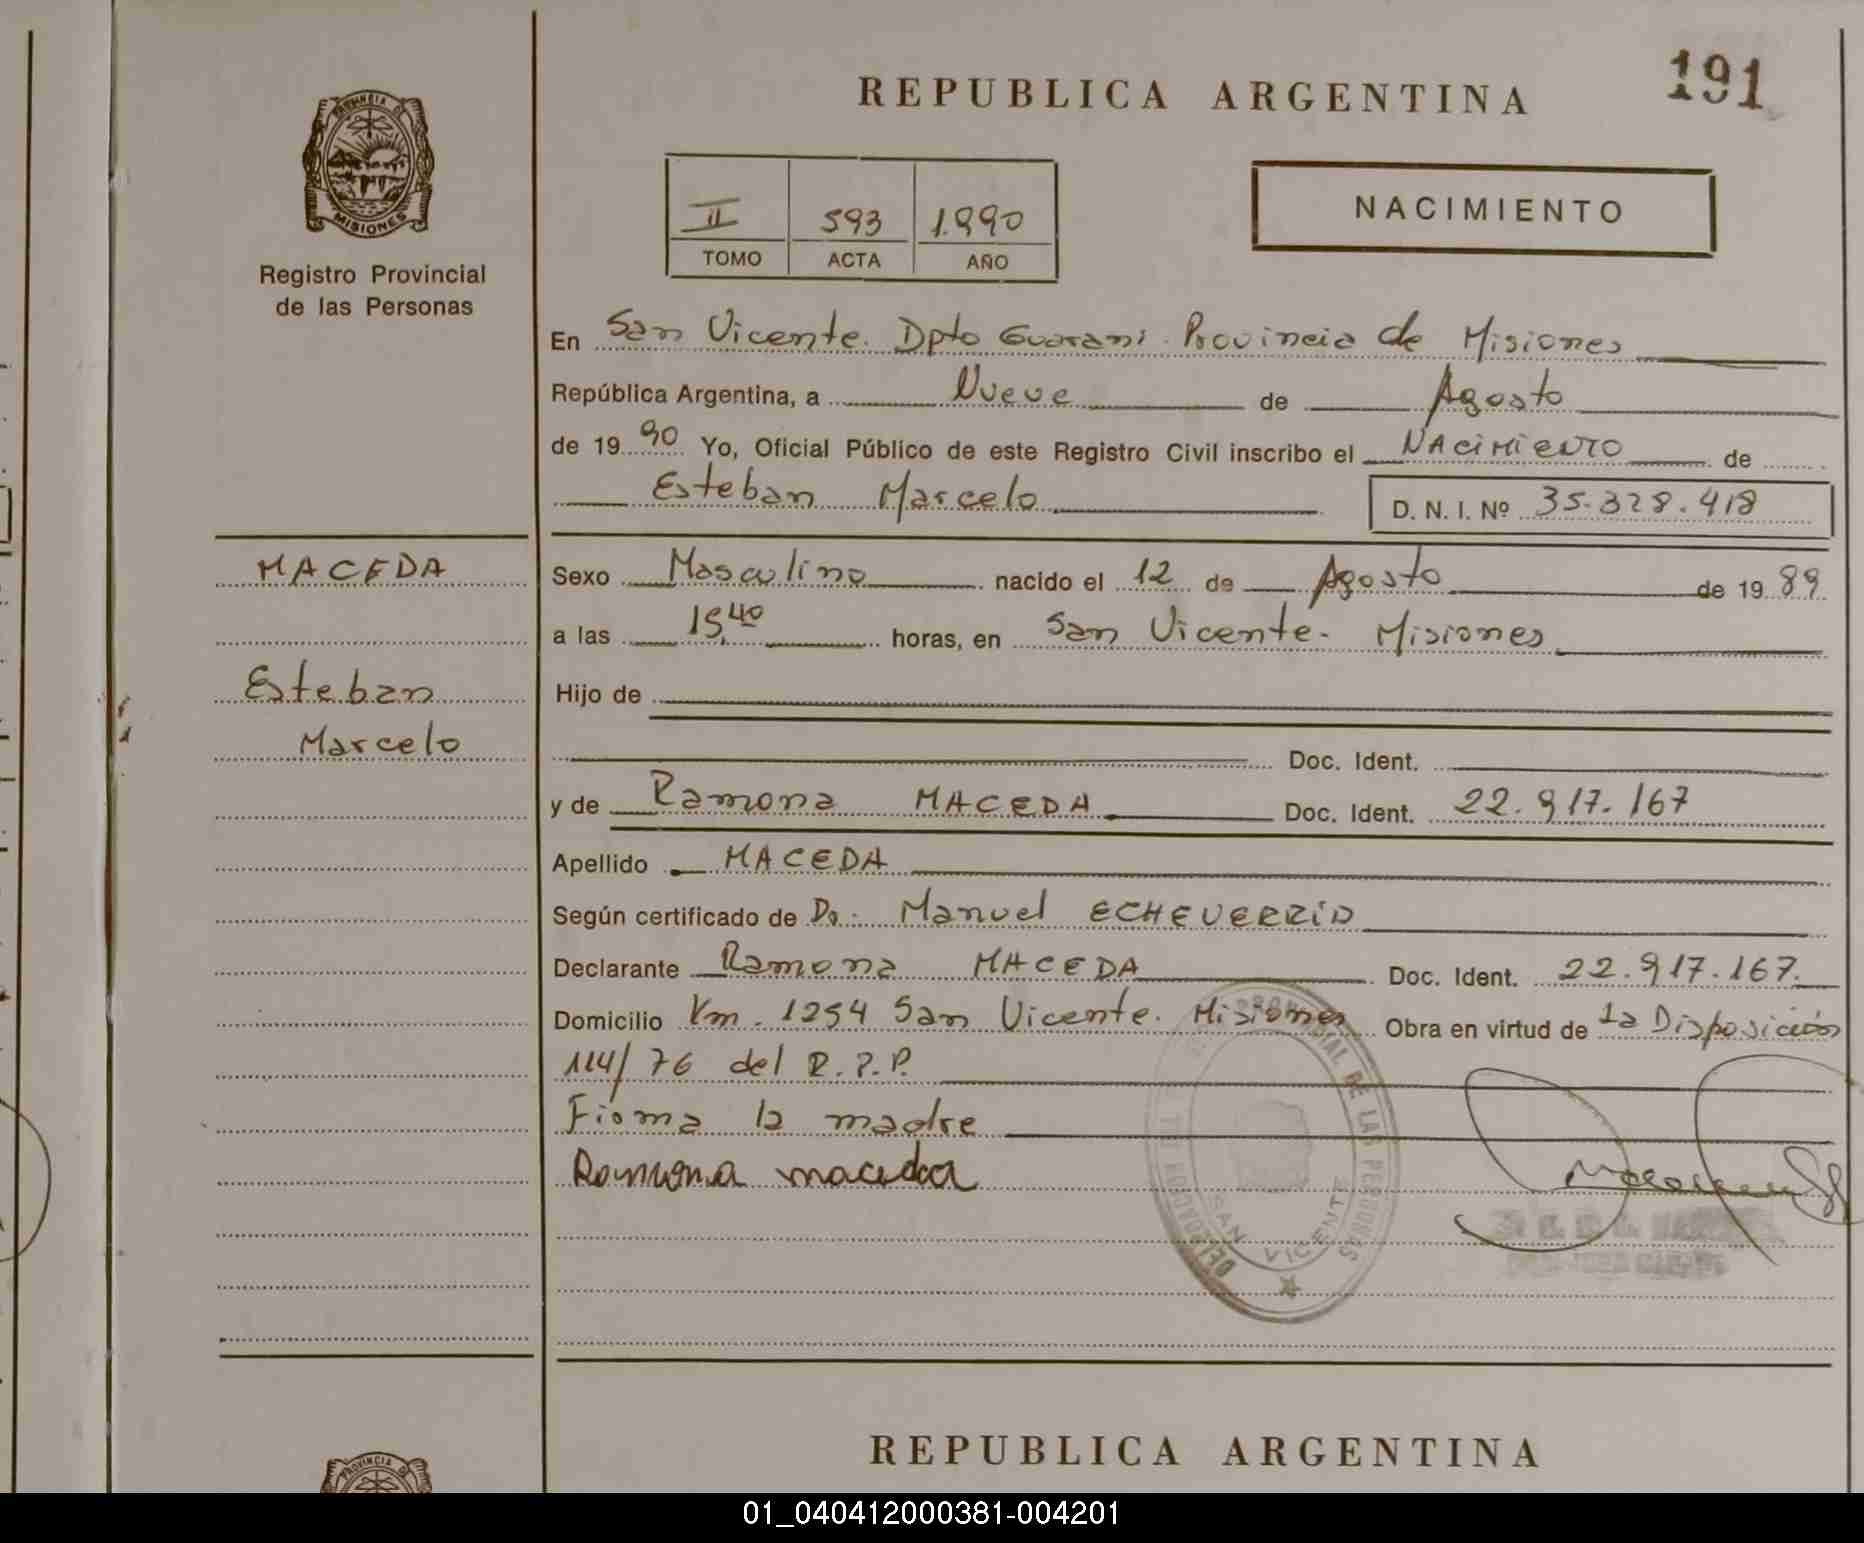 191
REPUBLICA ARGENTINA
PROVINCIA DE
MISIONES
Registro Provincial
de las Personas
II 593 1.990
TOMO ACTA AÑO
NACIMIENTO
En San Vicente. Dpto Guarani. Provincia de Misiones
República Argentina, a Nueve de Agosto
de 19 90 Yo, Oficial Público de este Registro Civil inscribo el NACIMIENTO de
Esteban Marcelo D. N. I. Nº 35.328.418
MACEDA
Esteban
Marcelo
Sexo Masculino nacido el 12 de Agosto de 19 89
a las 15,40 horas, en San Vicente - Misiones
Hijo de
Doc. Ident.
y de Ramona MACEDA Doc. Ident. 22.917.167
Apellido MACEDA
Según certificado de Dr.: Manuel ECHEVERRIA
Declarante Ramona MACEDA Doc. Ident. 22.917.167.
Domicilio Km. 1254 San Vicente. Misiones Obra en virtud de la Disposición
114/76 del R.P.P.
Firma la madre
Ramona maceda
DE LAS PERSONAS
SAN VICENTE
REPUBLICA ARGENTINA
PROVINCIA DE
01_040412000381-004201